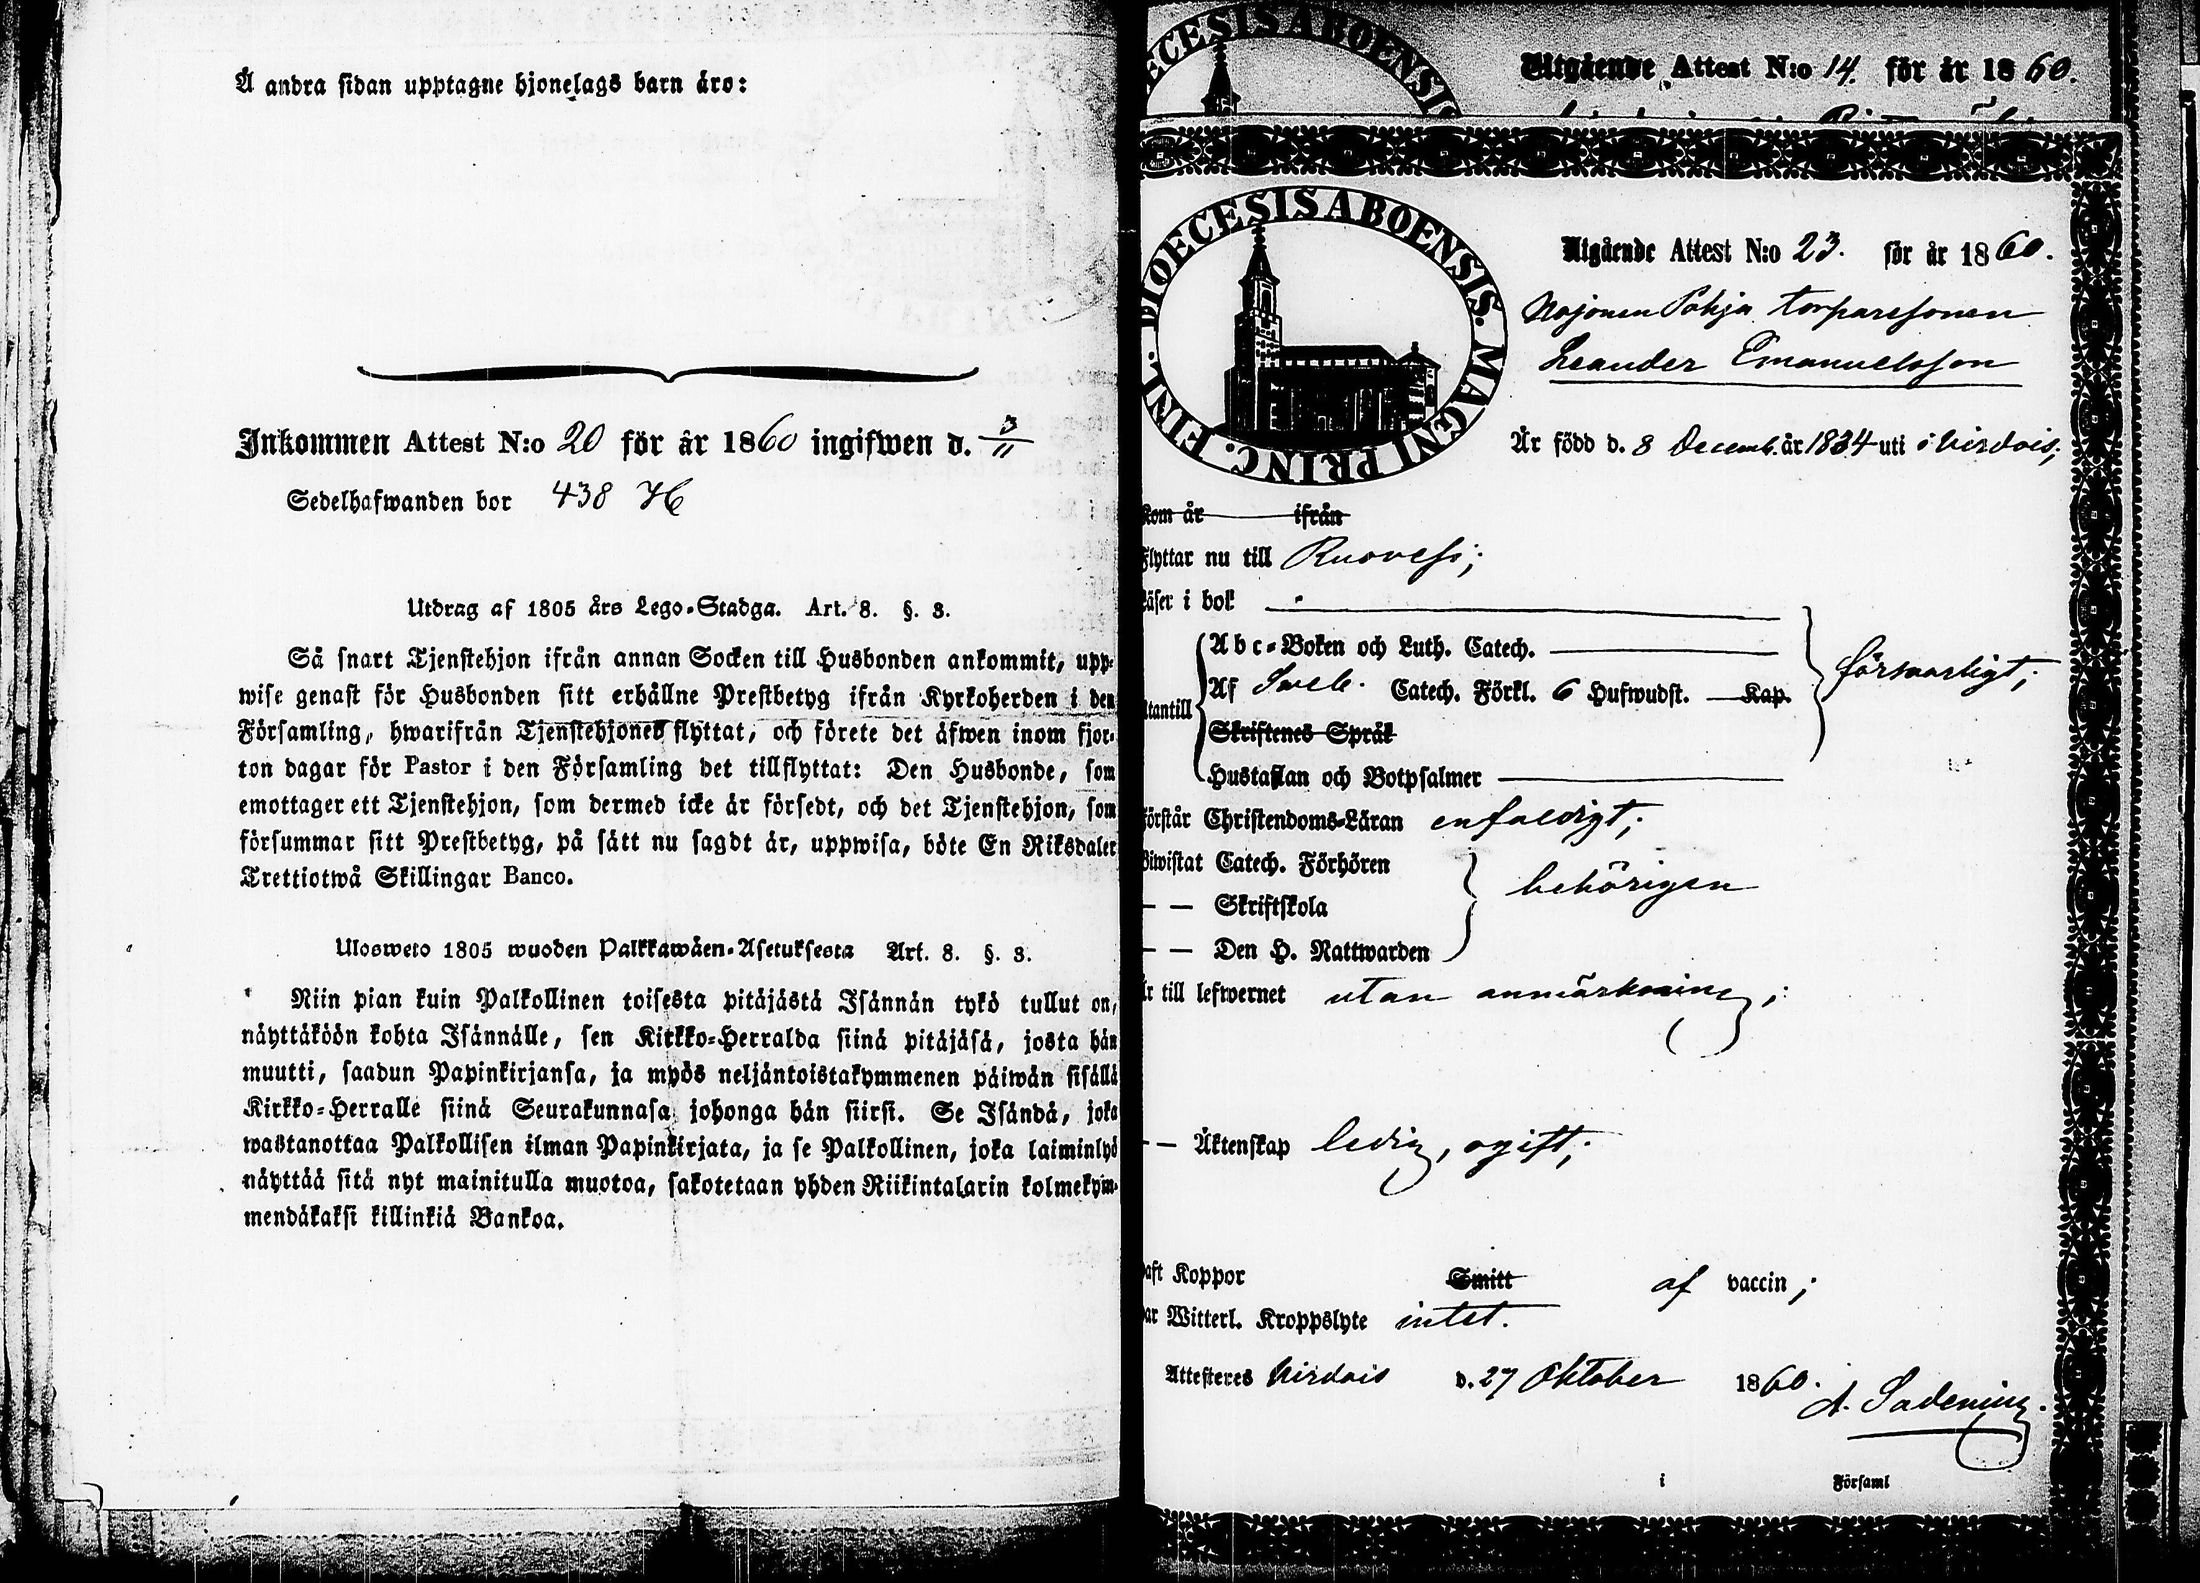 Å andra sidan upptagne hjonelags barn äro:
Inkommen Attest N:o 20 för år 1860 ingifwen d. 3/11
Sedelhafwanden bor 438 H
Utdrag af 1805 års Lego-Stadga. Art. 8. §. 3.
Så snart Tjenstehjon ifrån annan Socken till Husbonden ankommit, upp-
wise genast för Husbonden sitt erhållne Prestbetyg ifrån Kyrkoherden i den
Församling, hwarifrån Tjenstehjonet flyttat, och förete det äfwen inom fjor-
ton dagar för Pastor i den Församling det tillflyttat: Den Husbonde, som
emottager ett Tjenstehjon, som dermed icke är försedt, och det Tjenstehjon, som
försummar sitt Prestbetyg, på sätt nu sagdt är, uppwisa, böte En Riksdaler
Trettiotwå Skillingar Banco.
Ulosweto 1805 wuoden Palkkawäen-Asetuksesta Art. 8. §. 3.
Niin pian kuin Palkollinen toisesta pitäjästä Isännän tykö tullut on,
näyttäköön kohta Isännälle, sen Kirkko-Herralda siinä pitäjäsä, josta hän
muutti, saadun Papinkirjansa, ja myös neljäntoistakymmenen päiwän sisällä
Kirkko-Herralle siinä Seurakunnasa johonga hän siirsi. Se Isändä, joka
wastanottaa Palkollisen ilman Papinkirjata, ja se Palkollinen, joka laiminlyö
näyttää sitä nyt mainitulla muotoa, sakotetaan yhden Riikintalarin kolmekym-
mendäkaksi killinkiä Bankoa.
DIOECESIS ABOENSIS
Utgående Attest N:o 14. för år 1860.
DIOECESIS ABOENSIS. MAGNI PRINC. FINL.
Utgående Attest N:o 23. för år 1860.
Nojonen Pohja torparesonen
Leander Emanuelsson
Är född d. 8 Decemb. år 1834 uti i Virdois;
kom år ifrån
Flyttar nu till Ruovesi;
Läser i bok
Abc-Boken och Luth. Catech.
Utantill Af Sveb. Catech. Förkl. 6 Hufwudst. Kap. försvarligt;
Skriftenes Språk
Hustaflan och Botpsalmer
Förstår Christendoms-Läran enfaldigt;
Biwistat Catech. Förhören
— — Skriftskola behörigen
— — Den H. Nattwarden
Är till lefwernet utan anmärkning;
— — Äktenskap ledig, ogift;
Haft Koppor Smitt af vaccin;
Har Witterl. Kroppslyte intet.
Attesteres Virdois d. 27 Oktober 1860.
i Församl